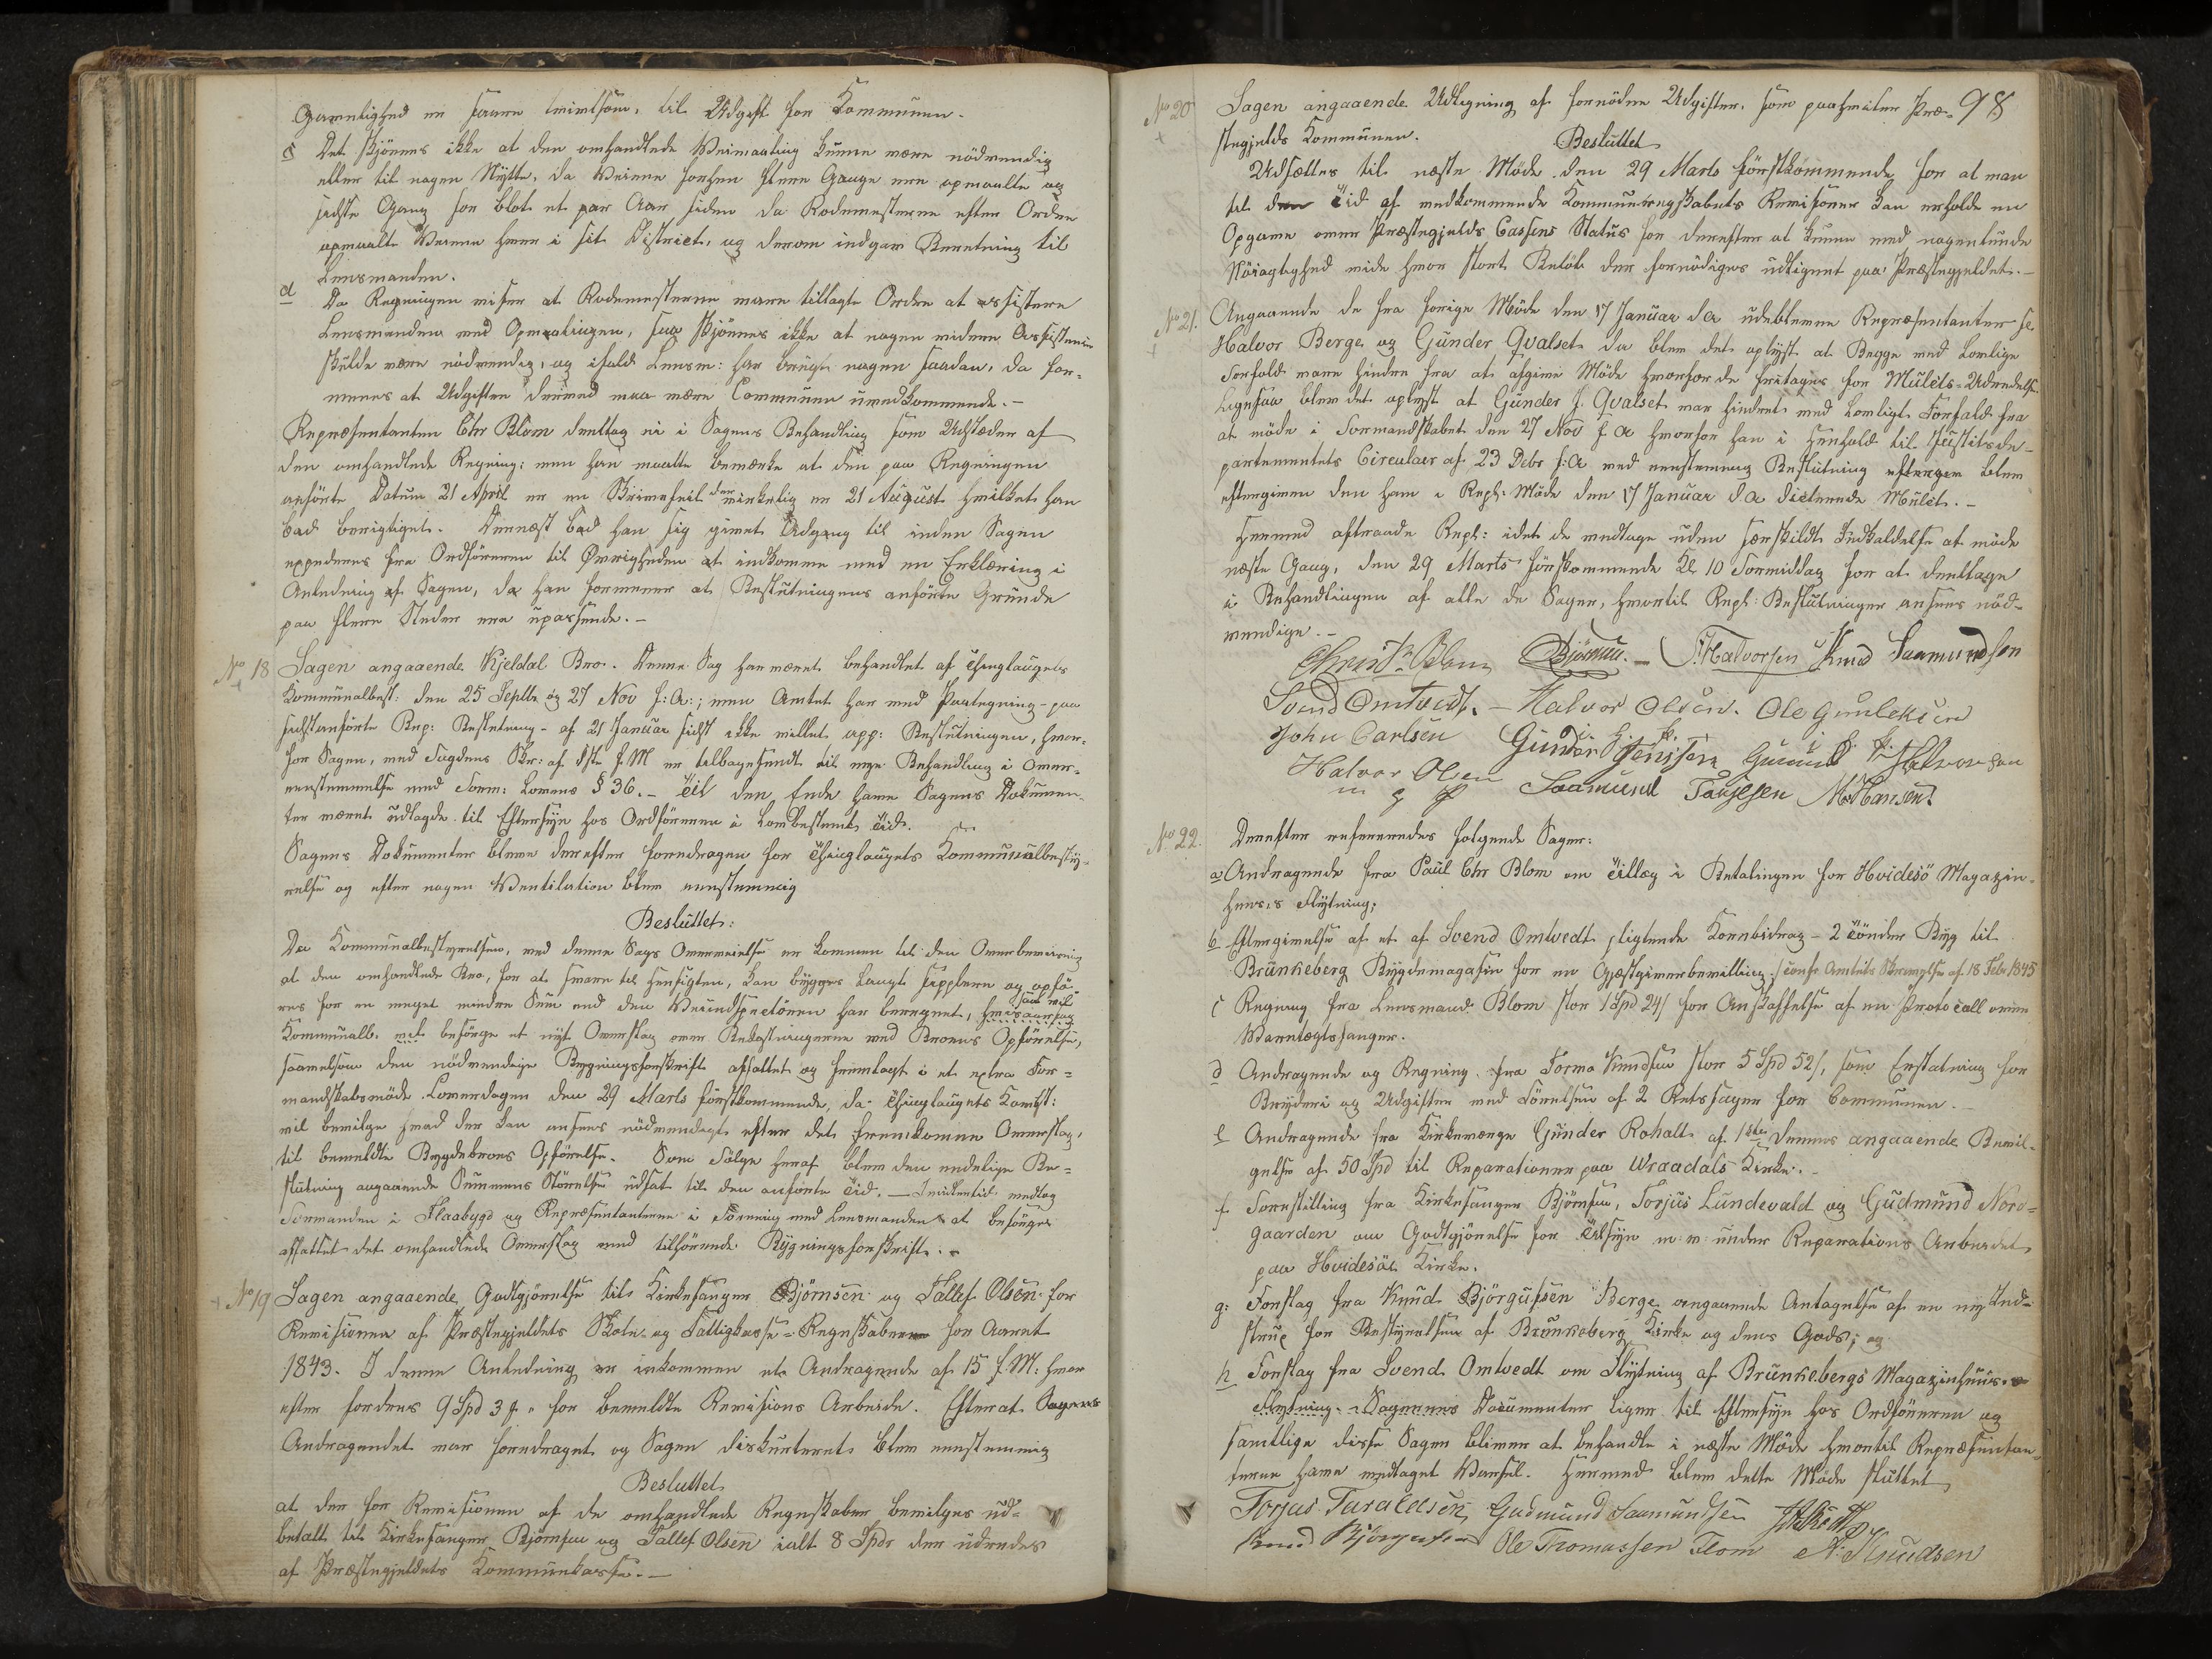 Gavnlighed en saare tvivlsom, til Udgift for Kommunen.
c Det skjönnes ikke at den omhandlede Veimaaling kunne være nödvendig
eller til nogen Nytte, da Veiene forhen flere Gange ere opmaalte og
sidste Gang for blot et par Aar siden da Rodemesterne efter Ordre
opmaalte Veiene hver i sit District, og derom indgav Beretning til
Lensmanden.
d Da Regningen viser at Rodemesterne vare tillagte Ordre at assistere
Lensmanden ved Opmaalingen, saa skjönnes ikke at nogen videre Assistence
skulde være nödvendig, og ifald Lensm: har brugt nogen saadan, da for-
menes at Udgiften derved maa være Communen uvedkommende. -
Repræsentanten Chr Blom deeltog ei i Sagens Behandling som Udsteder af
den omhandlede Regning; men han maatte bemærke at den paa Regningen
anförte Datum 21 April er en Skrivefeil der virkelig er 21 August hvilket han
bad berigtiget. Dernæst bad han sig givet Adgang til inden Sagen
expederes fra Ordföreren til Øvrigheden at indkomme med en Erklæring i
Anledning af Sagen, da han formener at Beslutningens anförte Grunde
paa flere Steder ere upassende. -
No 18 Sagen angaaende Kjeldal Bro. Denne Sag har været behandlet af Thinglaugets
Kommunalbest: den 25 Septbr og 27 Nov f:A:; men Amtet har med Paategning paa
sidstanförte Rep: Beslutning af 21 Januar sidst ikke villet app: Beslutningen, hvor-
for Sagen, med Fogdens Skr: af f.M er tilbagesendt til nye Behandling i Over-
eensstemmelse med Form: Lovens § 36. - Til den Ende have Sagens Dokumen-
ter været udlagde til Eftersyn hos Ordföreren i lovbestemt Tid.
Sagens Dokumenter bleve derefter foredragen for Thinglaugets Kommunalbesty-
relse og efter nogen Ventilation blev eenstemmig
Besluttet:
Da Kommunalbestyrelsen, ved denne Sags Overveielse er kommen til den Overbeviisning
at den omhandlede Bro, for at svare til Hensigten, kan bygges langt simplere og opfö-
res for en meget mindre Sum end den Veiinspecteuren har beregnet, hvisaarsag
Kommunalb. vil besörge et nyt Overslag over Bekostningerne ved Broens Opförelse,
saavelsom den nödvendige Bygningsforskrift affattet og fremlagt i et extra For-
mandskabsmöde Löverdagen den 29 Marts förstkommende, da Thinglaugets Kombst:
vil bevilge hvad der kan ansees nödvendigt efter det fremkomne Overslag,
til bemeldte Bygdebroes Opförelse. Som Fölge heraf blev den endelige Be-
slutning angaaende Summens Störrelse udsat til den anförte Tid. - Imidlertid vedtog
Formanden i Flaabygd og Repræsentanterne i Forening med Lensmanden at besörge
affattet det omhandlede Overslag med tilhörende Bygningsforskrift.
No 19 Sagen angaaende Godtgjörelse til Kirkesanger Björnsen og Tallef Olsen for
Revisionen af Præstegjeldets Skole- og Fattigkasse-Regnskaber for Aaret
1843. I denne Anledning er inkommen et Andragende af 15 f.M. hvor
efter fordres 9 Spd 3 for bemeldte Revisions Arbeide. Efterat Sagens
Andragendet var foredraget og Sagen diskuteret blev eenstemmig
Besluttet
at der for Revisionen af de omhandlede Regnskaber bevilges ud-
betalt til Kirkesanger Björnsen og Tallef Olsen ialt 8 Spdr der udredes
af Præstegjeldets Kommunkasse. -
98
No 20 Sagen angaaende Udligning af fornödne Udgifter, som paahviler Præ-
stegjelds Kommunen.
Besluttet
Udsættes til næste Möde den 29 Marts förstkommende for at man
til den Tid af vedkommende Kommuneregnskabets Revisorer kan erholde en
Opgave over Præstegjelds Cassens Status for derefter at kunne med nogenlunde
Nöiagtighed vide hvor stort Belöb der fornödiges udlignet paa Præstegjeldet. -
No 21. Angaaende de fra forige Möde den 17 Januar d A udeblevne Repræsentanter
Halvor Berge og Gunder Qvalset da blev det oplyst at Begge ved lovlige
Forfald vare hindre fra at afgive Möde hvorfor de fritages for Mulcts-Udredelse.
Ligesaa blev det oplyst at Gunder J. Qvalset var hindret ved lovligt Forfald fra
at möde i Formandskabet den 27 Nov f A hvorfor han i Henhold til Justitsde-
partementets Circulær af 23 Debr f:A ved eenstemmig Beslutning blev
eftergiven den ham i Repf: Möde den 17 Januar d A dicterede Mulct. -
Hermed aftraade Repf: idet de vedtage uden særskildt Indkaldelse at möde
næste Gang, den 29 Marts förstkommende Kl 10 Formiddag for at deeltage
i Behandlingen af alle de Sager, hvortil Repf: Beslutninger ansees nöd-
vendige. -
Christn Blom Björnsen. - T. Halvorsen Knud Saamundsen
Svend Omtvedt. - Halvor Olsen. Ole Gunleksen
John Carlsen Gunder Jensen Gunder Halvorsen
Halvor Olsen Saamund Tarjesen M Hansen
m p P
No 22. Derefter refereredes folgende Sager:
a Andragende fra Paul Chr Blom om Tillæg i Betalingen for Hvidesö Magazin-
huses Flytning;
b Eftergivelse af et af Svend Omtvedt pligtende Kornbidrag - 2 Tönder Byg til
Brunkeberg Bygdemagasin for en Gjæstgiverbevilling; /confr. Amtets Skrivelse af 18 Febr 1845
c Regning fra Lensmand Blom stor 1 Spd 24 s for Anskaffelse af en Protocall over
Varetægtsfanger.
d Andragende og Regning fra Tormo Knudsen stor 5 Spd 52 s, som Erstatning for
Bryderi og Udgifter ved Förelsen af 2 Retssager for Communen. -
e Andragende fra Kirkeværge Gunder Rohalt af 1ste dennes angaaende Bevil-
gelse af 50 Spd til Reparationer paa Wraadals Kirke. -
f. Forestilling fra Kirkesanger Björnsen, Torjus Lundevald og Gudmund Nord-
gaarden om Godtgjörelse for Tilsyn m:m: under Reparations Arbeidet
paa Hvidesöe Kirke.
g: Forslag fra Knud Björgufsen Berge angaaende Antagelse af en ny Ind-
strux for Bestyrelsen af Brunkeberg Kirke og dens Gods; og
h Forslag fra Svend Omtvedt om Flytning af Brunkebergs Magazinhuus.
Flytning. - Sagernes Documenter ligge til Eftersyn hos Ordföreren og
samtlige disse Sager bliver at behandle i næste Möde hvortil Repræsentan-
terne have vedtaget Varsel. Hermed blev dette Möde sluttet
Torjus Taraldsen, Gudmund Saamundsen
Knud Björgufsen Ole Thomassen Flom A. Knudsen